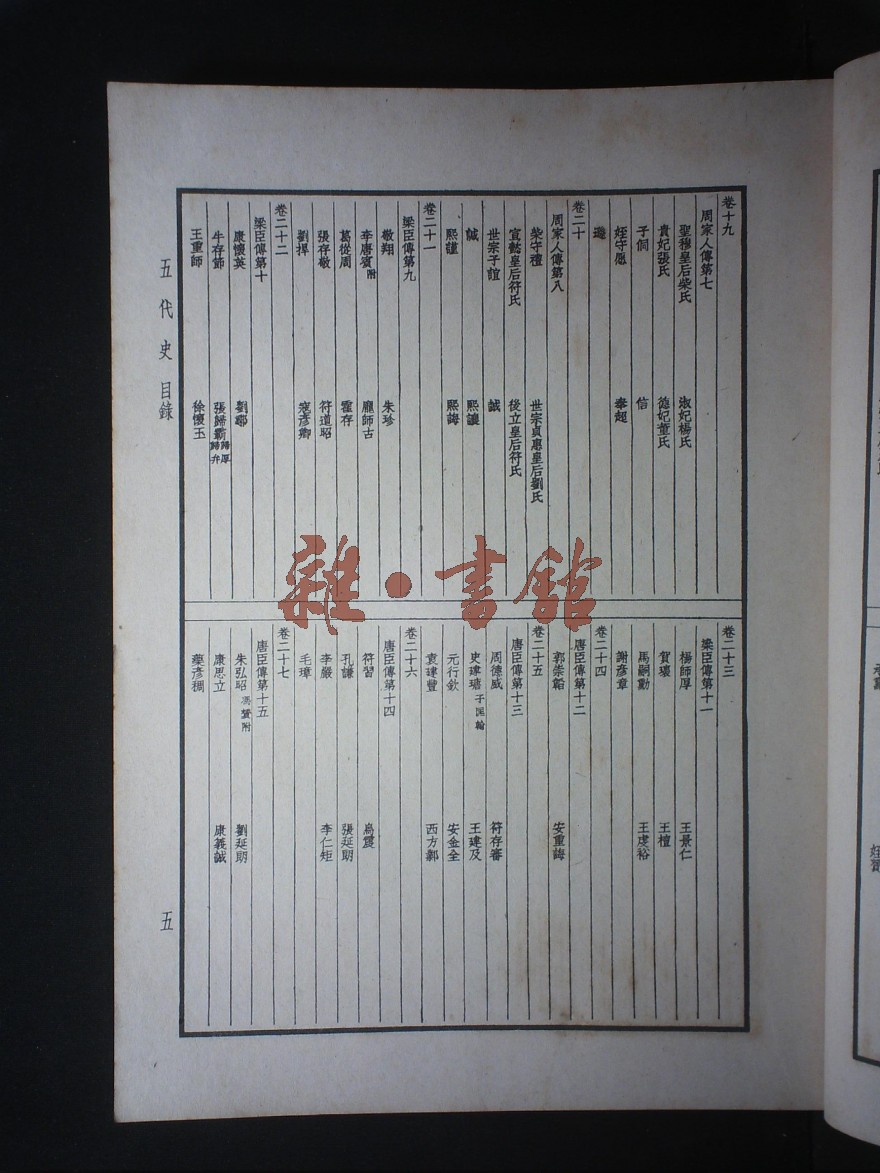 卷十九
周家人傳第七
聖穆皇后柴氏 淑妃楊氏
貴妃張氏 德妃董氏
子侗 信
姪守愿 奉超
遜
卷二十
周家人傳第八
柴守禮 世宗貞惠皇后劉氏
宣懿皇后符氏 後立皇后符氏
世宗子誼 誠
諴 熙讓
熙謹 熙誨
卷二十一
梁臣傳第九
敬翔 朱珍
李唐賓附 龐師古
葛從周 霍存
張存敬 符道昭
劉捍 寇彥卿
卷二十二
梁臣傳第十
康懷英 劉鄩
牛存節 張歸霸歸厚歸弁
王重師 徐懷玉
卷二十三
梁臣傳第十一
楊師厚 王景仁
賀瓌 王檀
馬嗣勳 王虔裕
謝彥章
卷二十四
唐臣傳第十二
郭崇韜 安重誨
卷二十五
唐臣傳第十三
周德威 符存審
史建瑭子匡翰 王建及
元行欽 安金全
袁建豐 西方鄴
卷二十六
唐臣傳第十四
符習 烏震
孔謙 張延朗
李嚴 李仁矩
毛璋
卷二十七
唐臣傳第十五
朱弘昭馮贇附 劉延朗
康思立 康義誠
藥彥稠
五代史 目錄
五
雜·書館